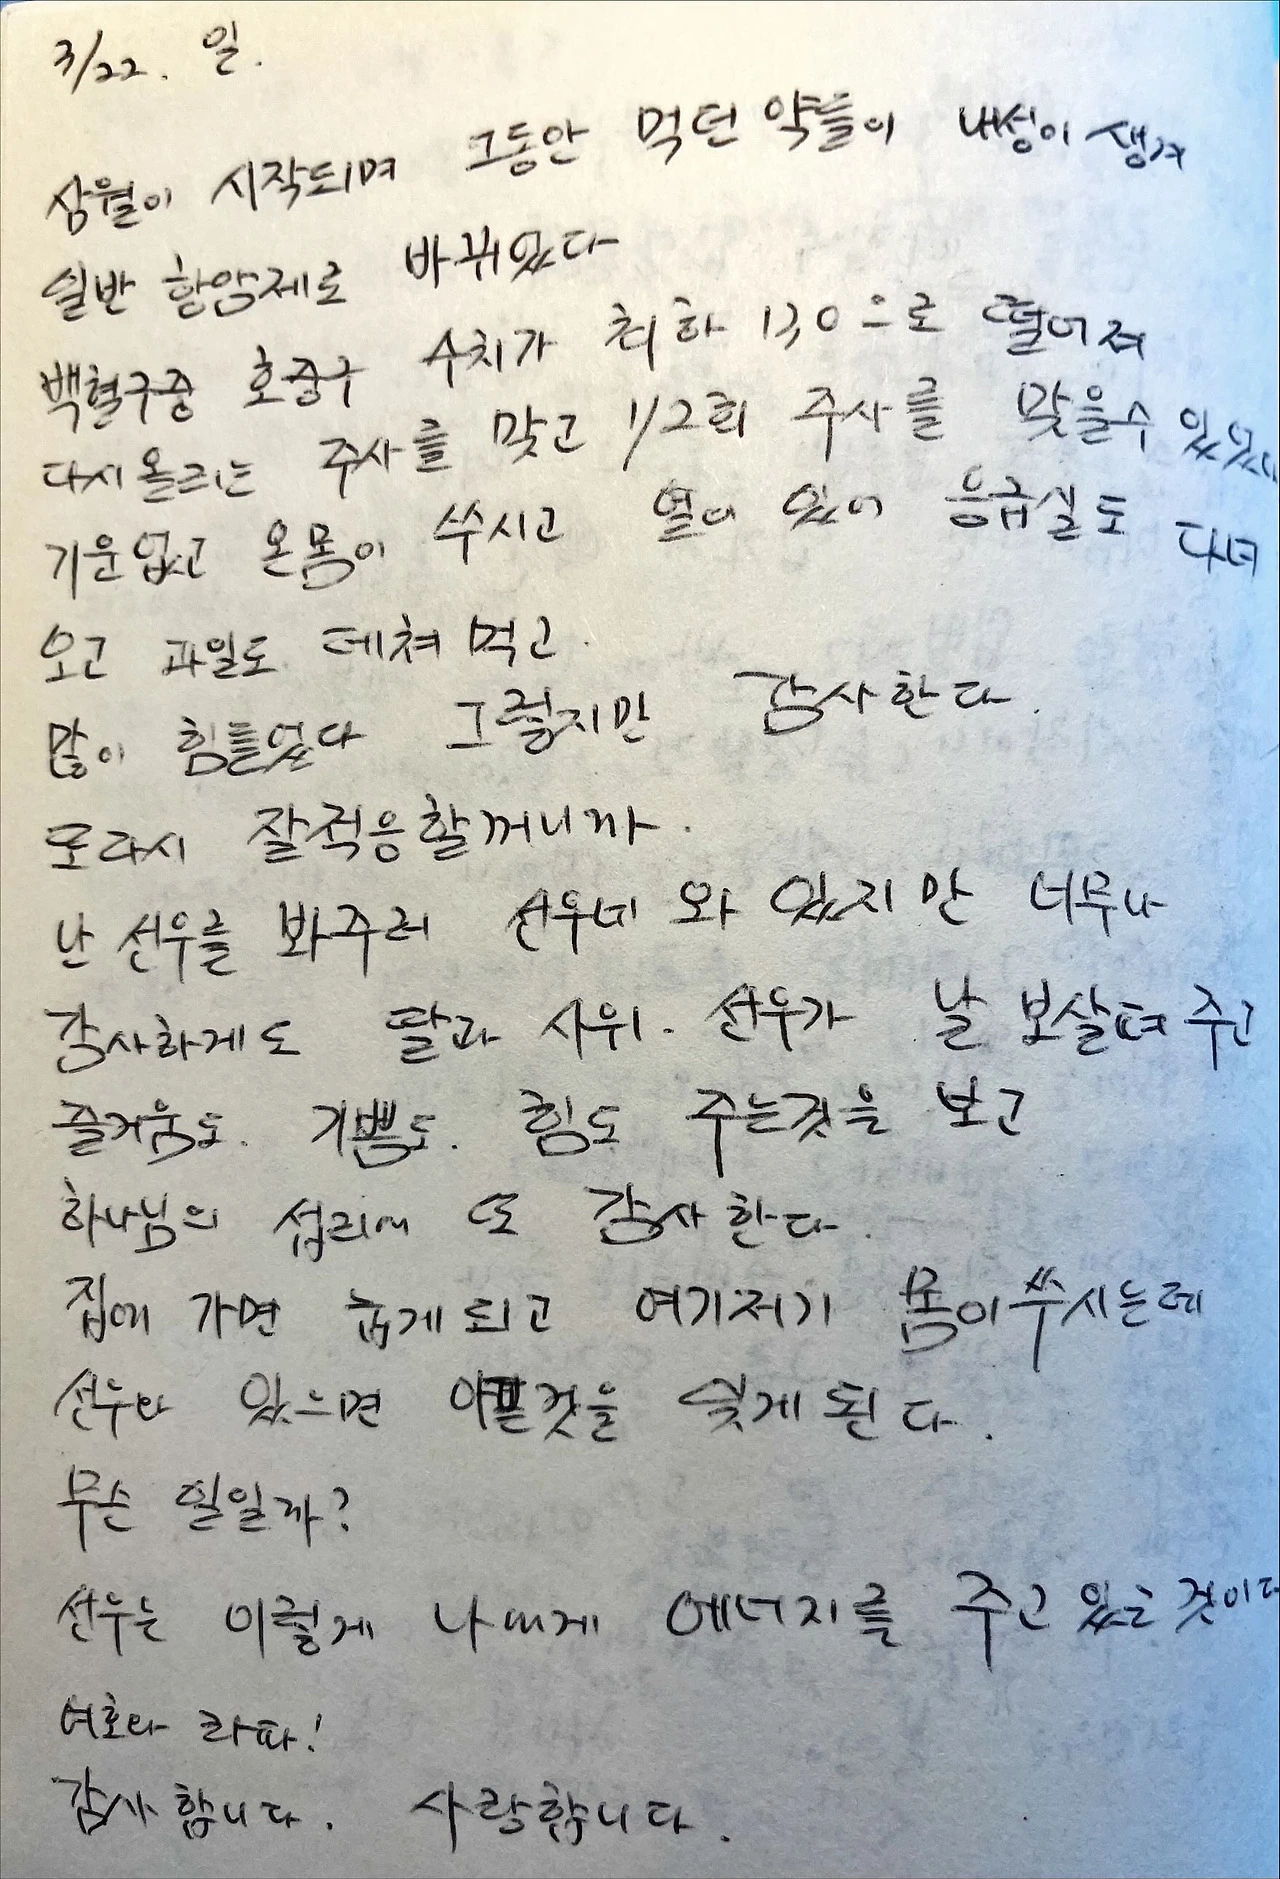 3/22. 일.
삼월이 시작되며 그동안 먹던 약들이 내성이 생겨
일반 항암제로 바뀌었다
백혈구중 호중구 수치가 최하 130으로 떨어져
다시 올리는 주사를 맞고 1/2회 주사를 맞을수 있었다
기운없고 온몸이 쑤시고 열이 있어 응급실도 다녀
오고 과일도 데쳐 먹고.
많이 힘들었다 그렇지만 감사한다.
또다시 잘적응할꺼니까.
난 선우를 봐주러 선우네 와 있지만 너무나
감사하게도 딸과 사위. 선우가 날 보살펴 주고
즐거움도. 기쁨도. 힘도 주는것을 보고
하나님의 섭리에 또 감사한다.
집에 가면 눕게되고 여기저기 몸이쑤시는데
선우와 있으면 아픈것을 잊게 된다.
무슨 일일까?
선우는 이렇게 나에게 에너지를 주고 있는 것이다
여호와 라파!
감사합니다. 사랑합니다.